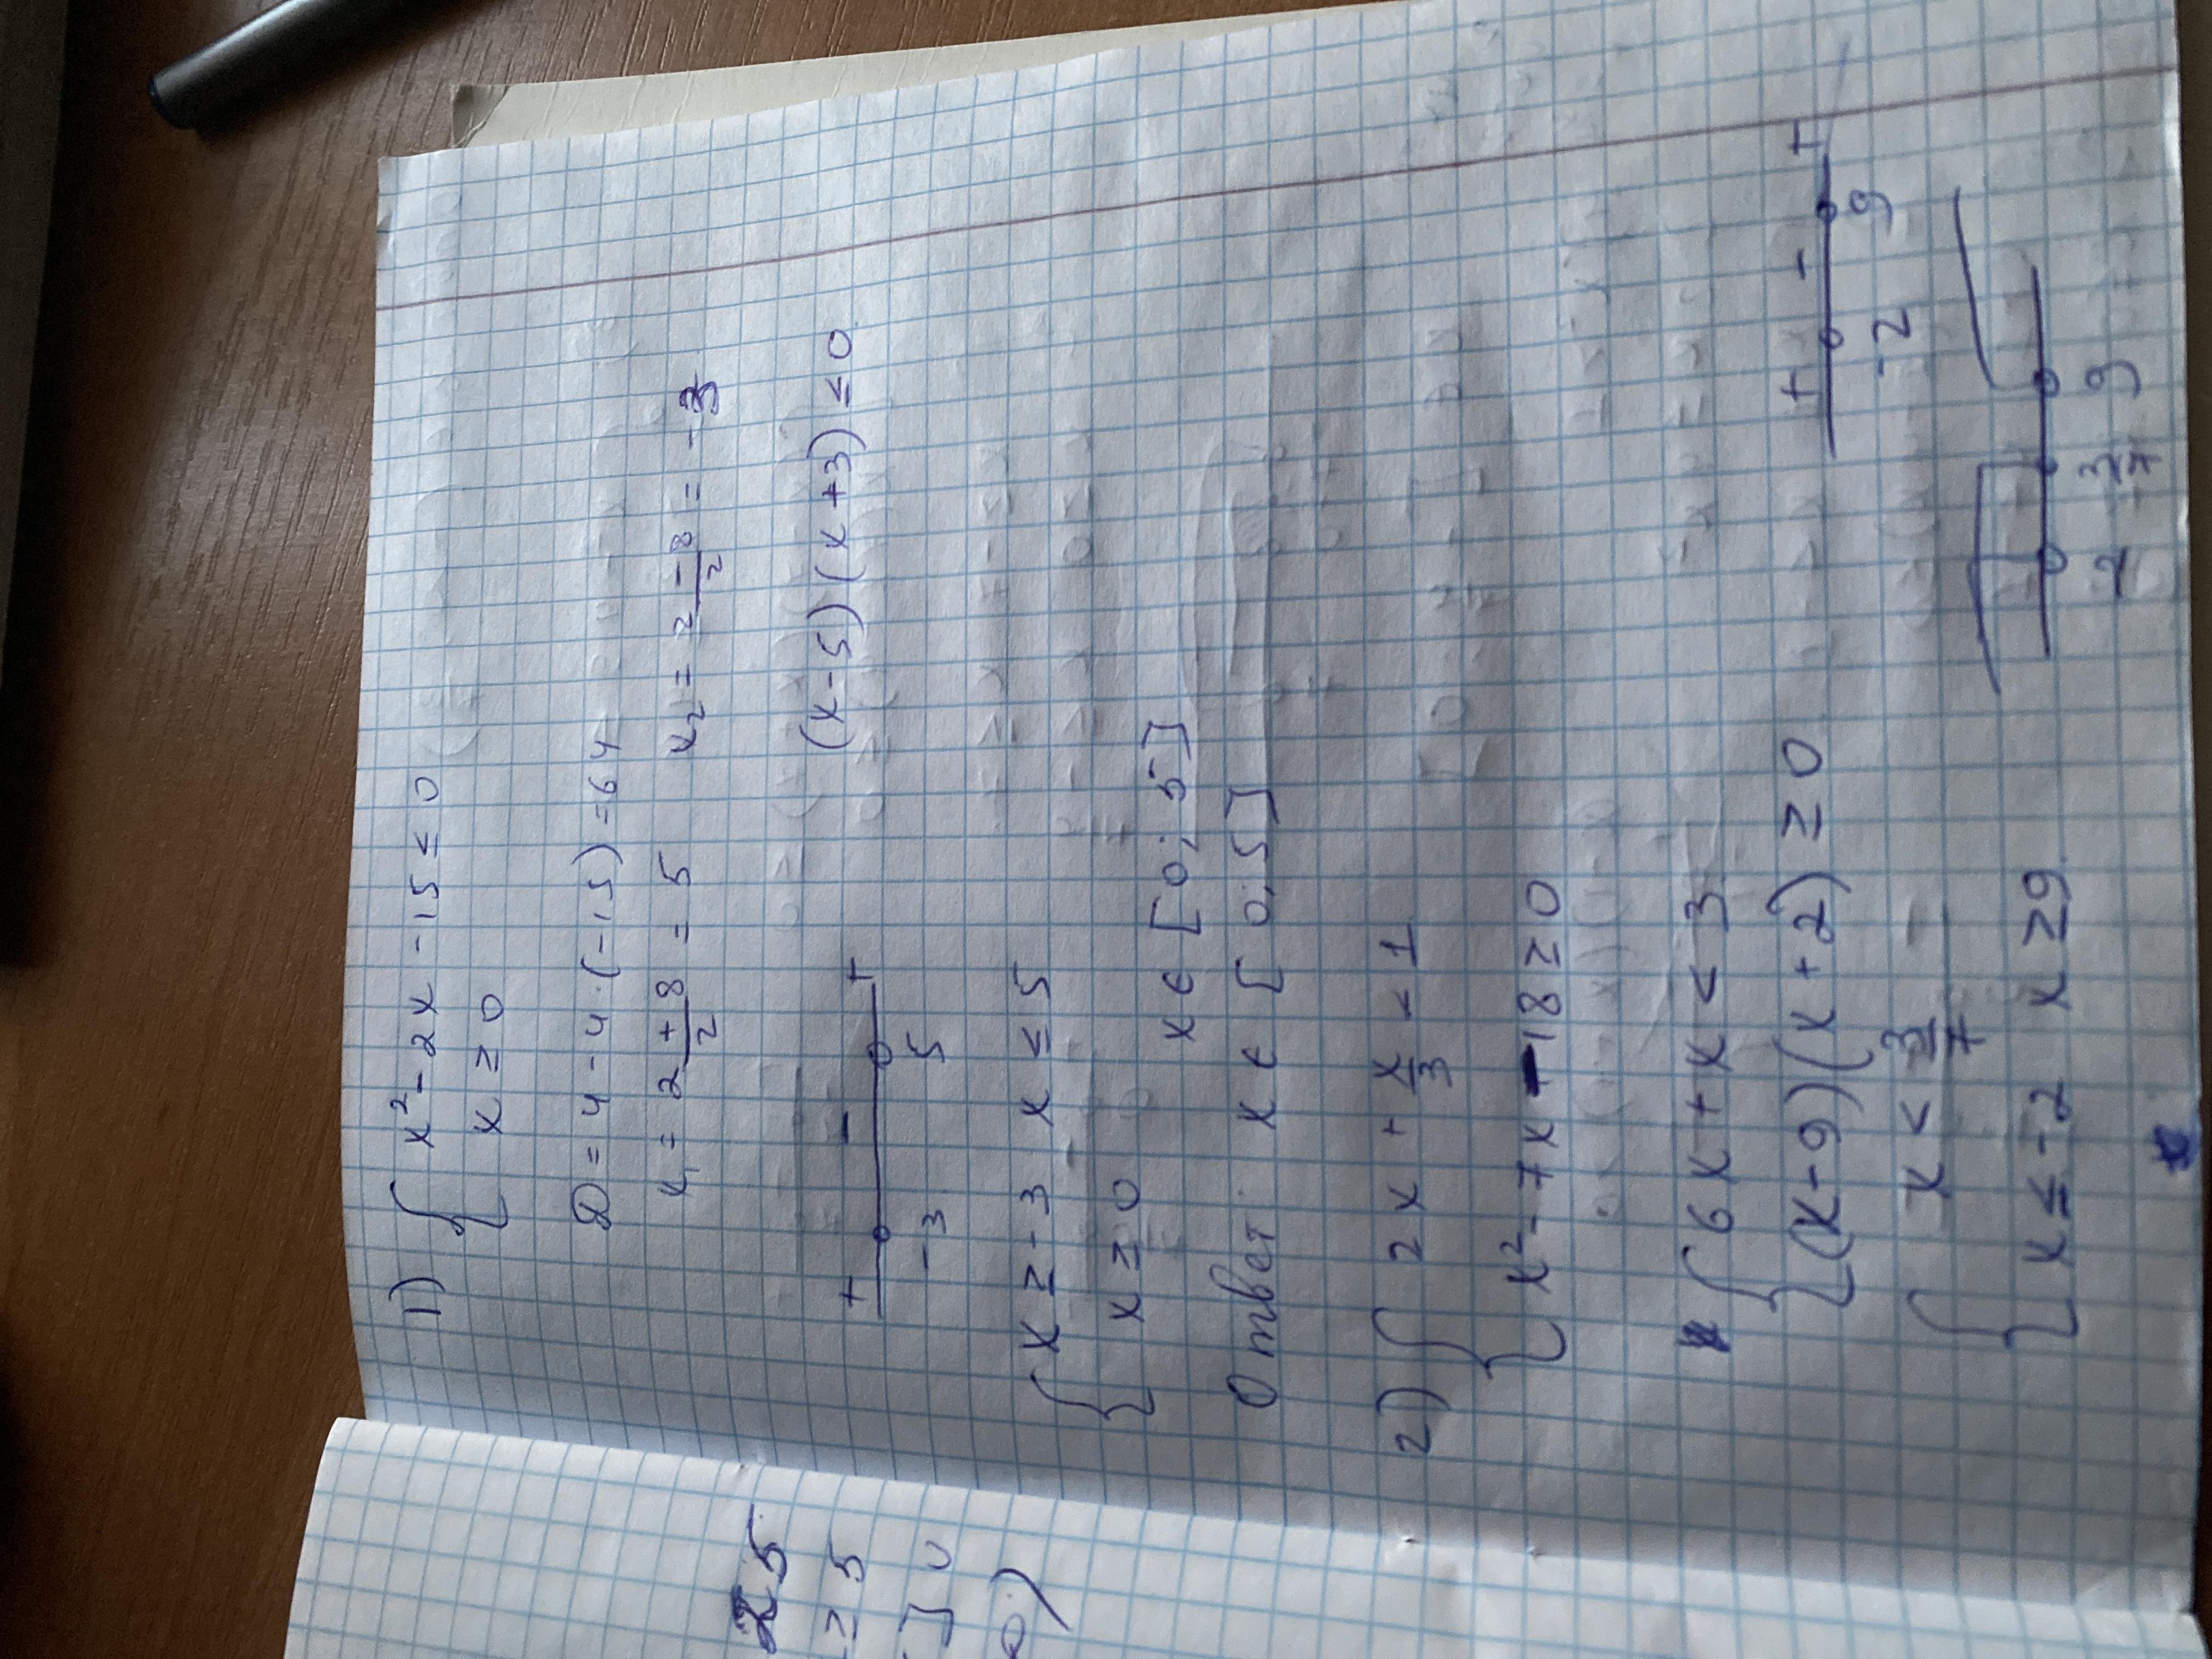 1) { x² - 2x - 15 ≤ 0
x ≥ 0
D = 4 - 4·(-15) = 64
x₁ = 2+8/2 = 5 x₂ = 2-8/2 = -3
(x-5)(x+3) ≤ 0
+ - +
-3 5
{ x ≥ -3 x ≤ 5
x ≥ 0
x ∈ [0; 5]
Ответ: x ∈ [0; 5]
2) { 2x + x/3 < 1
x² - 7x - 18 ≥ 0
{ 6x + x < 3
(x-9)(x+2) ≥ 0
+ - +
-2 9
{ x < 3/7
x ≤ -2 x ≥ 9
2 3/7 9
25
≥ 5